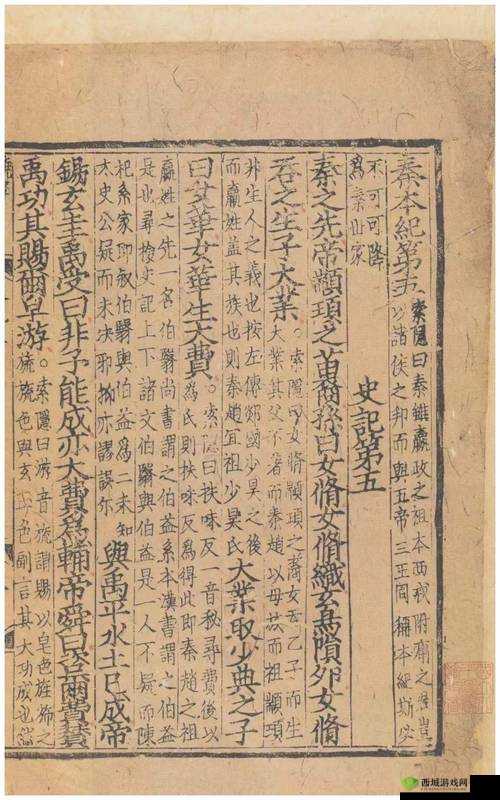 秦本紀第五
索隱曰秦雖嬴政之祖本西戎附庸之君豈
以諸侯之邦而與五帝三王同稱本紀斯必
不可可降
爲秦世家
史記第五
秦之先帝顓頊之苗裔孫曰女脩女脩織玄鳥隕卵女脩
吞之生子大業
索隱曰女脩顓頊之裔女吞乙子而生
大業其父不著而秦趙以母族而祖顓頊
非生人之義也按左傳郯國少昊之後
而嬴姓其族也則秦趙宜祖少昊氏
大業取少典之子
曰女華女華生大費
索隱曰扶味反一音秘尋費後以
爲氏則扶味反爲得此即秦趙之祖
嬴姓之先一名伯翳尚書謂之伯益系本漢書謂之伯益
是也尋檢史記上下諸文伯翳與伯益是一人不疑而陳
杞系家即敘伯翳與伯益爲二未知
太史公疑而未決邪抑亦謬誤尔
與禹平水土已成帝
錫玄圭禹受曰非予能成亦大費爲輔帝舜曰咨爾費贊
禹功其賜爾皁游
索隱曰游音旒謂賜以皁色旌旆之
旒旒色與玄玉色副言其大功成也然
西城游戏网